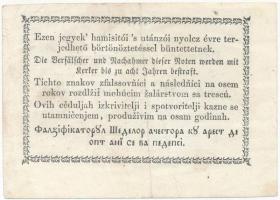 Ezen jegyek' hamisitói 's utánzói nyolcz évre ter-
jedhető börtönöztetéssel büntettetnek.
Die Verfälscher und Nachahmer dieser Noten werden mit
Kerker bis zu acht Jahren bestraft.
Tichto znakov zfalssovńíci a následńíci na osem
rokov rozdlźiť mohúcim žalárstvom sa trescú.
Ovih céduljah izkrivitelji i spotvoritelji kazne se
utamničenjem, produživim na osam godinah.
Фалзіфікаторꙋл Шеделор ачестора кꙋ арест де
опт ані се ва педепсі.